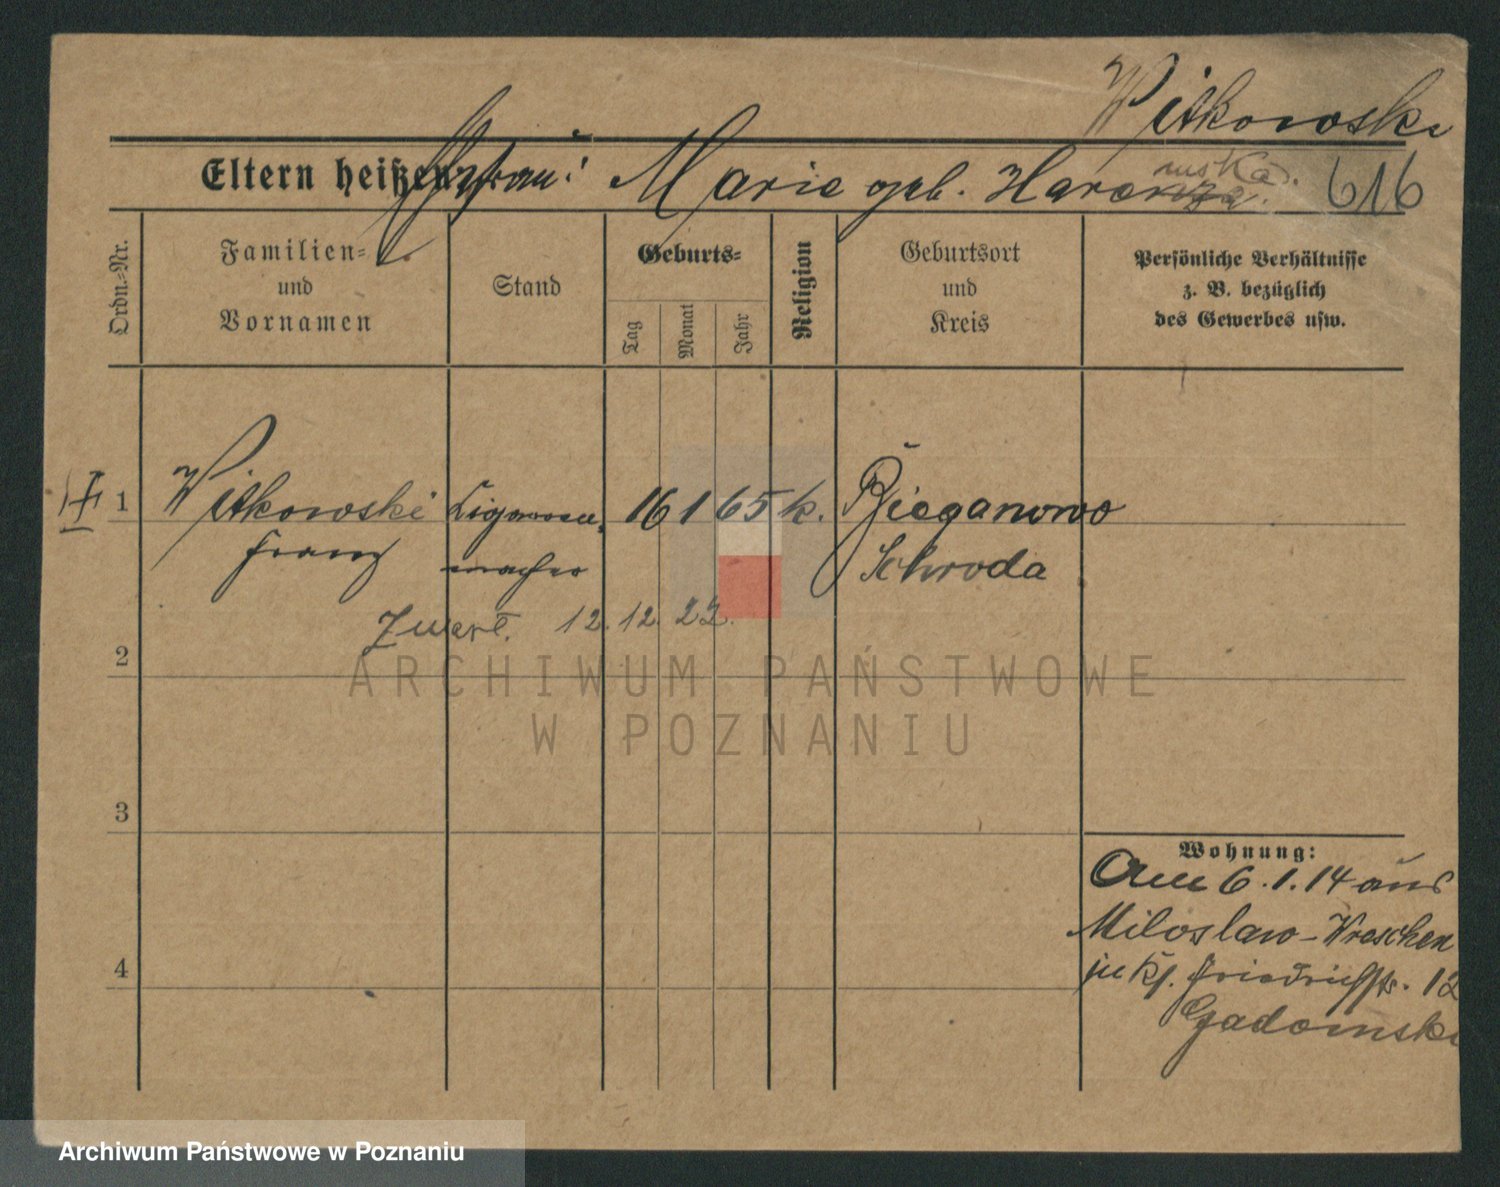 Witkowski
Eltern heißen Ehefrau: Marie geb. Harenza. 616
ruska.
Ordn.-Nr.
Familien- und Vornamen
Stand
Geburts-
Tag
Monat
Jahr
Religion
Geburtsort und Kreis
Persönliche Verhältnisse
z. B. bezüglich
des Gewerbes usw.
I 1 Witkowski Cigarren- 16 1 65 k. Bieganowo
Franz macher Schroda
Zmarł. 12.12.22.
2
3
4
Wohnung:
Am 6.1.14 aus
Miloslaw-Wreschen
Friedrichstr. 12
Gadomski
ARCHIWUM PAŃSTWOWE
W POZNANIU
Archiwum Państwowe w Poznaniu